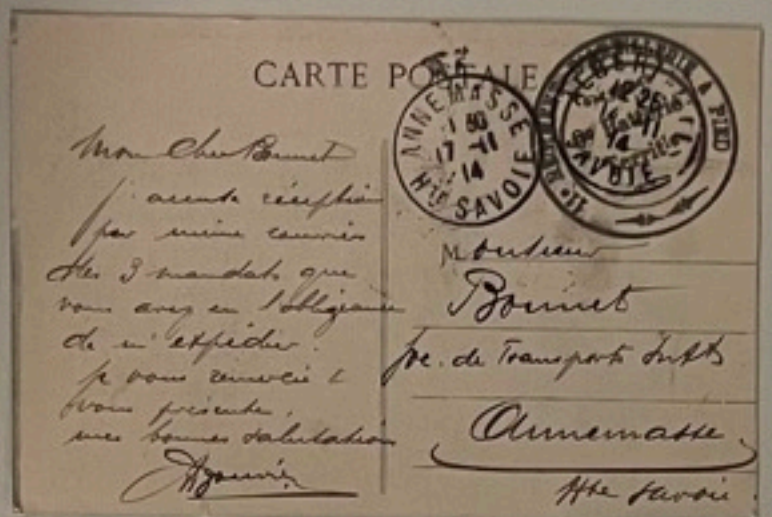 CARTE POSTALE
ANNEMASSE
1 30
17-11
14
Hte SAVOIE
11e D'ARTILLERIE A PIED
12 25
11
14
SAVOIE
Mon Cher Bonnet
j'accuse réception
par même courrier
des 3 mandats que
vous avez eu l'obligeance
de m'expédier.
Je vous remercie &
vous présente,
mes bonnes salutations
Monsieur
Bonnet
de Transports
Annemasse.
Hte Savoie.